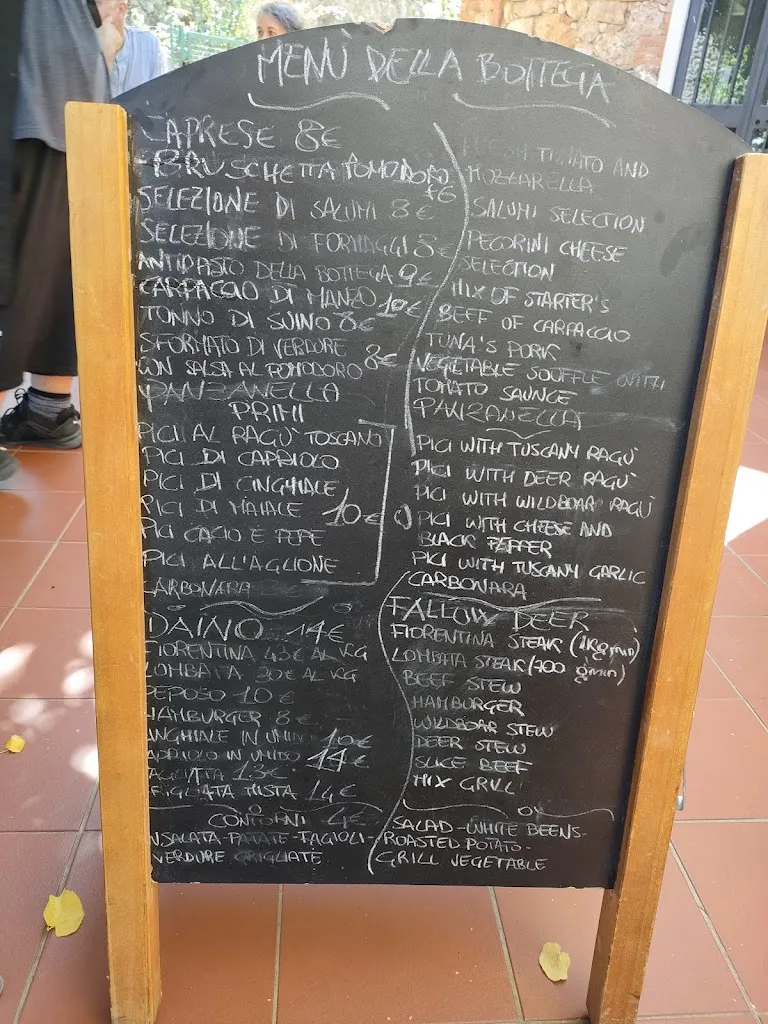 MENÙ DELLA BOTTEGA
CAPRESE 8€
BRUSCHETTA POMODORO
€6
SELEZIONE DI SALUMI 8€
SELEZIONE DI FORMAGGI 8€
ANTIPASTO DELLA BOTTEGA 9€
CARPACCIO DI MANZO 10€
TONNO DI SUINO 8€
SFORMATO DI VERDURE 8€
CON SALSA AL POMODORO
PANZANELLA
PRIMI
PICI AL RAGÙ TOSCANO
PICI DI CAPRIOLO
PICI DI CINGHIALE
PICI DI MAIALE 10€
PICI CACIO E PEPE
PICI ALL'AGLIONE
CARBONARA
DAINO 14€
FIORENTINA 43€ AL KG
LOMBATA 30€ AL KG
PEPOSO 10€
HAMBURGER 8€
NGHIALE IN UMIDO 10€
APRIOLO IN UMIDO 14€
TAGLIATA 13€
GRIGLIATA MISTA 14€
CONTORNI 4€
NSALATA-PATATE-FAGIOLI-
VERDURE GRIGLIATE
FRESH TOMATO AND
MOZZARELLA
SALUMI SELECTION
PECORINI CHEESE
SELECTION
MIX OF STARTER'S
BEEF OF CARPACCIO
TUNA'S PORK
VEGETABLE SOUFFLE WITH
TOMATO SAUNCE
PANZANELLA
PICI WITH TUSCANY RAGÙ
PICI WITH DEER RAGÙ
PICI WITH WILDBOAR RAGÙ
PICI WITH CHEESE AND
BLACK PEPPER
PICI WITH TUSCANY GARLIC
CARBONARA
FALLOW DEER
FIORENTINA STEAK (1kg min)
LOMBATA STEAK (700 g min)
BEEF STEW
HAMBURGER
WILDBOAR STEW
DEER STEW
SLICE BEEF
MIX GRILL
SALAD-WHITE BEENS-
ROASTED POTATO-
GRILL VEGETABLE